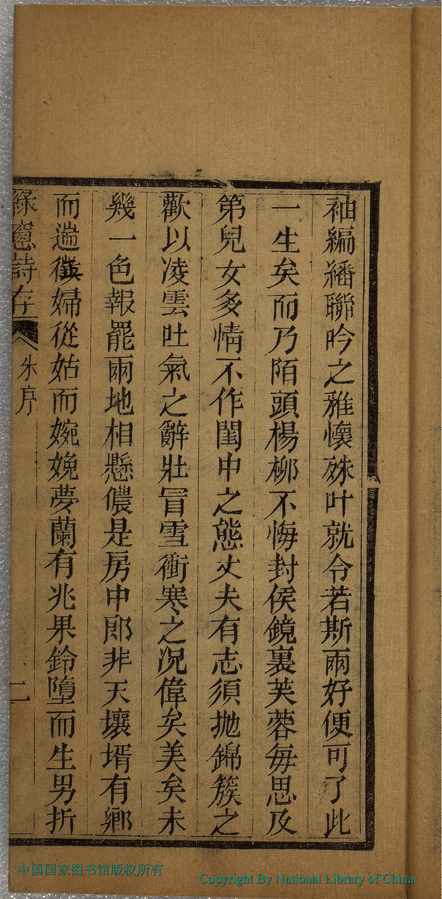 袖編繙聯吟之雅懷殊叶就令若斯兩好便可了此
一生矣而乃陌頭楊柳不悔封侯鏡裏芙蓉每思及
第兒女多情不作閨中之態丈夫有志須拋錦簇之
歡以凌雲吐氣之辭壯冒雪衝寒之况偉矣美矣未
幾一色報罷兩地相懸儂是房中郎非天壤壻有鄉
而遄徵婦從姑而婉娩夢蘭有兆果鈴墮而生男折
綠窻詩存 朱序 二
中国国家图书馆版权所有
Copyright By National Library of China